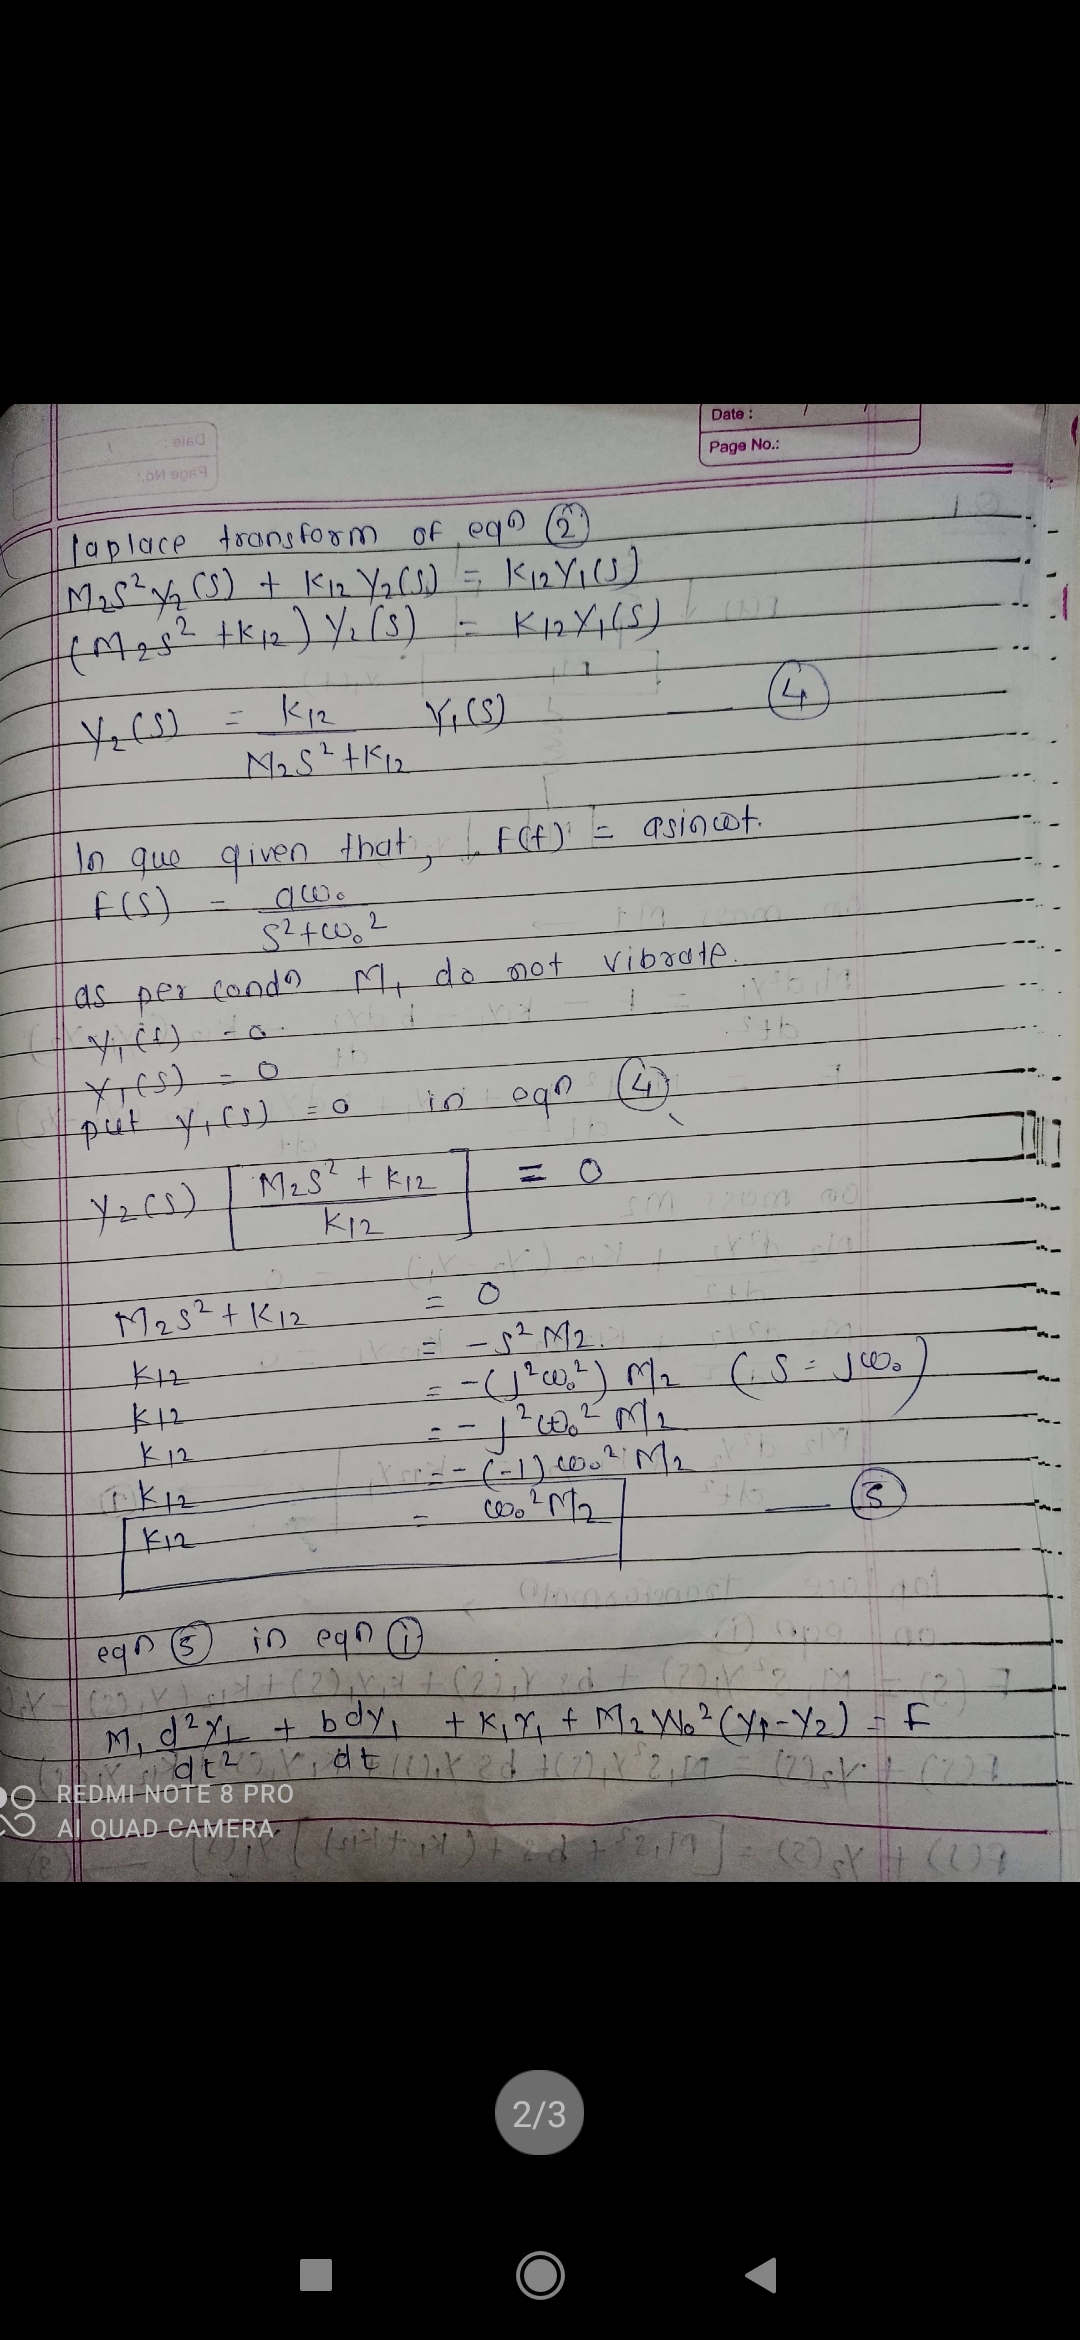 Date :
Page No.:
laplace transform of eqn (2)
M₂S² Y₂(S) + K₁₂ Y₂(S) = K₁₂Y₁(S)
(M₂S² + K₁₂) Y₂(S) = K₁₂Y₁(S)
Y₂(S) = K₁₂ / M₂S² + K₁₂ Y₁(S) —— (4)
In que given that, F(t) = asinωt.
F(S) = aω₀ / S²+ω₀²
as per condn M₁ do not vibrate.
Y₁(t) = 0
Y₁(S) = 0
put Y₁(S) = 0 in eqn (4)
Y₂(S) [M₂S² + K₁₂ / K₁₂] = 0
M₂S² + K₁₂ = 0
K₁₂ = -S² M₂.
K₁₂ = -(j²ω₀²) M₂ (∵ S = jω₀)
K₁₂ = - j²ω₀² M₂
K₁₂ = - (-1) ω₀² M₂
K₁₂ = ω₀² M₂ —— (5)
eqn (5) in eqn (i)
M₁ d²Y₁/dt² + b dy₁/dt + K₁Y₁ + M₂ W₀² (Y₁-Y₂) = F
REDMI NOTE 8 PRO
AI QUAD CAMERA
2/3